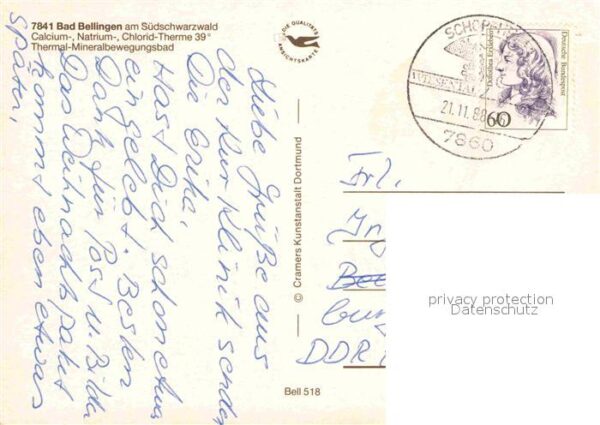 7841 Bad Bellingen am Südschwarzwald
Calcium-, Natrium-, Chlorid-Therme 39°
Thermal-Mineralbewegungsbad
Liebe Grüße aus
der Kur Klinik
Die Erika,
Hast Dich schon etwas
eingelebt. Besten
Dank für Post u Bilder
Das Weihnachtspaket
kommt eben etwas
später,
DIE QUALITÄTS
ANSICHTSKARTE
© Cramers Kunstanstalt Dortmund
Bell 518
21.11.88
7860
60
Deutsche Bundespost
Frl.
DDR
privacy protection
Datenschutz